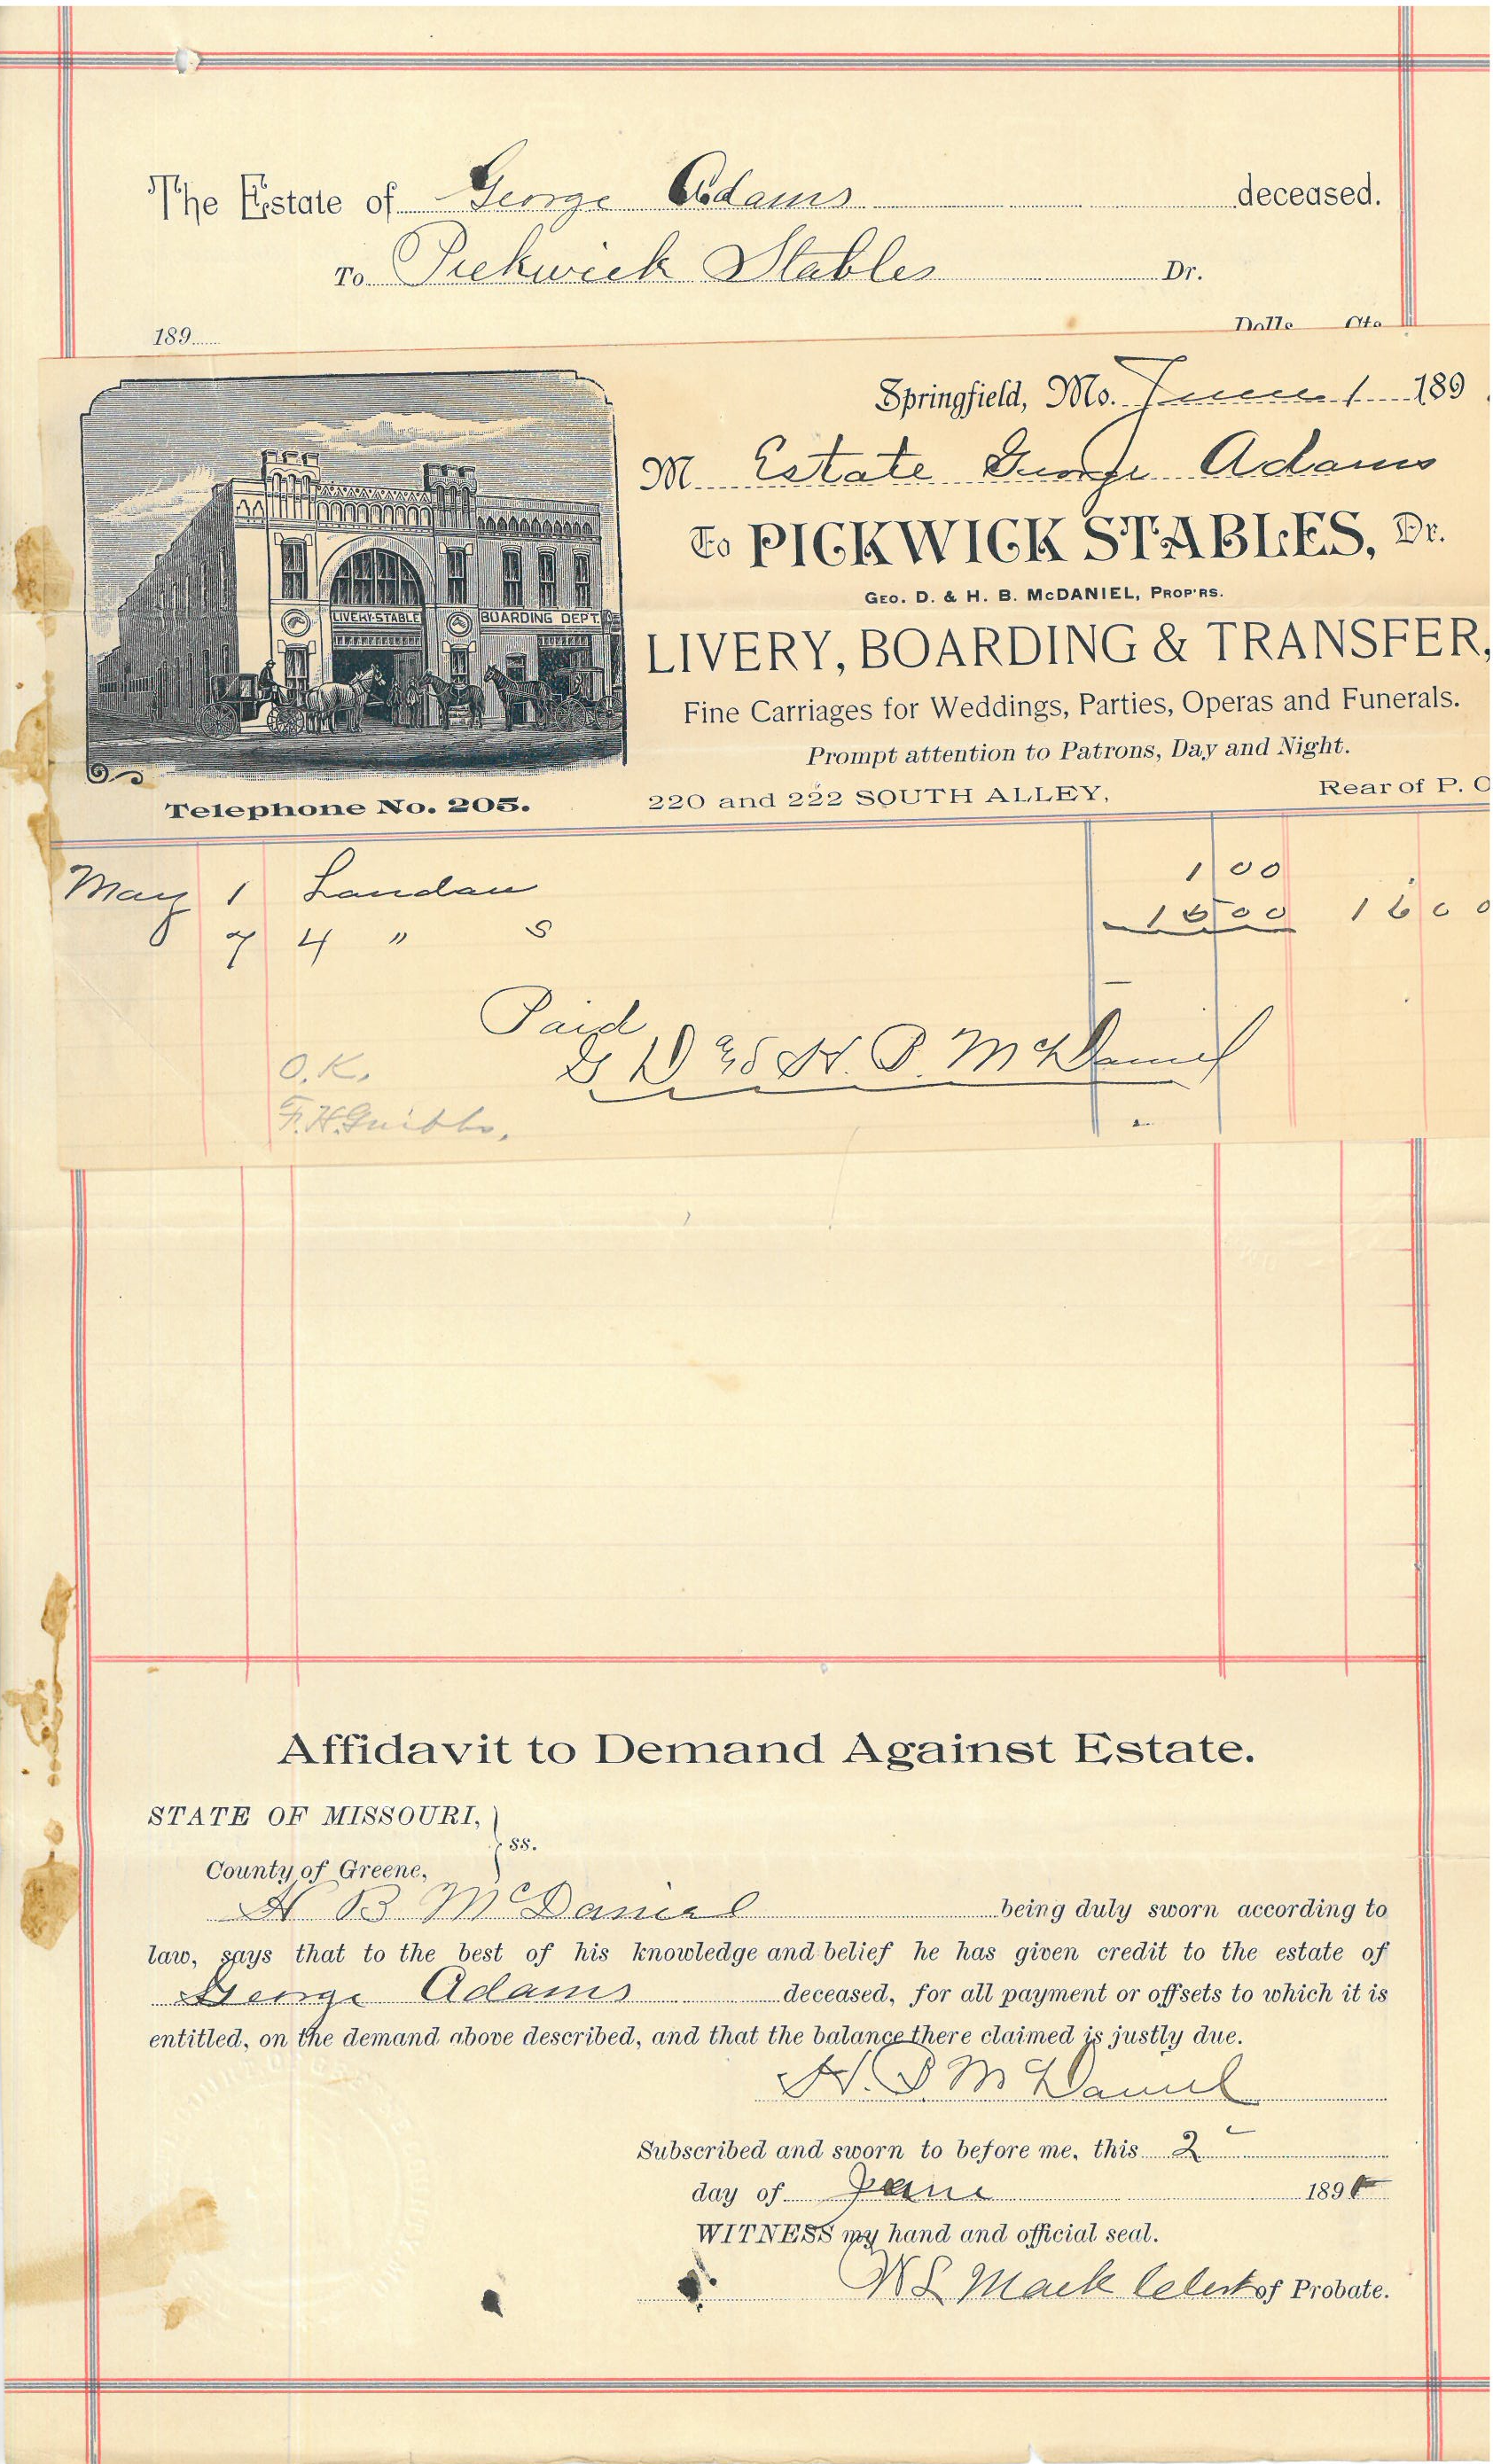 The Estate of George Adams deceased.
To Pickwick Stables Dr.
189
Dolls. Cts.
Springfield, Mo. June 1 189
M Estate George Adams
To PICKWICK STABLES, Dr.
GEO. D. & H. B. McDANIEL, PROP'RS.
LIVERY, BOARDING & TRANSFER,
Fine Carriages for Weddings, Parties, Operas and Funerals.
Prompt attention to Patrons, Day and Night.
LIVERY STABLE
BOARDING DEPT.
Telephone No. 205. 220 and 222 SOUTH ALLEY, Rear of P. O
May 1 Landau 1 00
7 4 " s 15 00 16 00
Paid
G D & H. B. McDaniel
O.K.
F.H.
Affidavit to Demand Against Estate.
STATE OF MISSOURI, } ss.
County of Greene,
H B McDaniel being duly sworn according to
law, says that to the best of his knowledge and belief he has given credit to the estate of
George Adams deceased, for all payment or offsets to which it is
entitled, on the demand above described, and that the balance there claimed is justly due.
H. B McDaniel
Subscribed and sworn to before me, this 2
day of June 189
WITNESS my hand and official seal.
W S Mack Clerk of Probate.